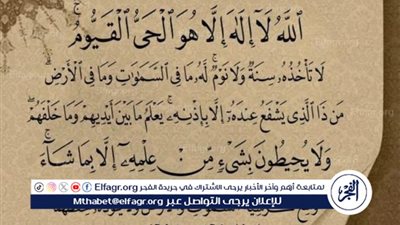 ٱللَّهُ لَآ إِلَٰهَ إِلَّا هُوَ ٱلْحَىُّ ٱلْقَيُّومُ ۚ
لَا تَأْخُذُهُۥ سِنَةٌ وَلَا نَوْمٌ ۚ لَّهُۥ مَا فِى ٱلسَّمَٰوَٰتِ وَمَا فِى ٱلْأَرْضِ ۗ
مَن ذَا ٱلَّذِى يَشْفَعُ عِندَهُۥٓ إِلَّا بِإِذْنِهِۦ ۚ يَعْلَمُ مَا بَيْنَ أَيْدِيهِمْ وَمَا خَلْفَهُمْ ۖ
وَلَا يُحِيطُونَ بِشَىْءٍ مِّنْ عِلْمِهِۦٓ إِلَّا بِمَا شَآءَ ۚ
الفجر
لمتابعة أهم وأخر الأخبار يرجى الاشتراك في جريدة الفجر Elfagr.org
للإعلان يرجى التواصل عبر Mthabet@elfagr.org